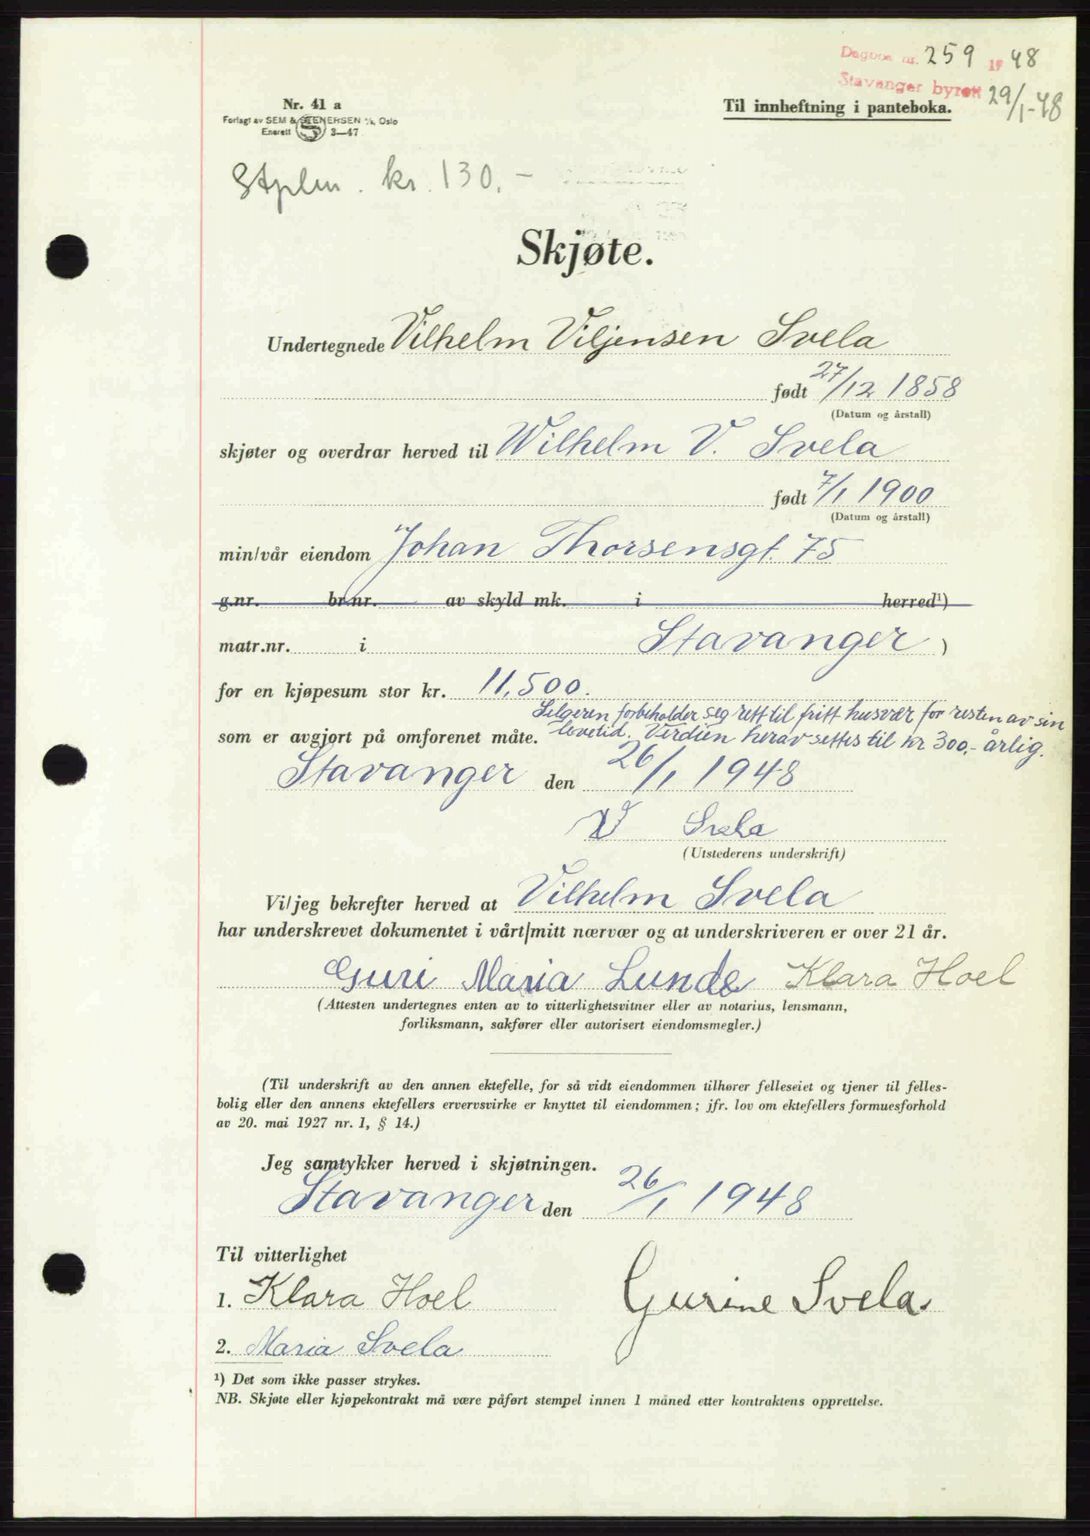 Dagbok nr. 259 1948
Stavanger byrett 29/1-48
Nr. 41 a
Forlagt av SEM & STENERSEN A/S, Oslo
Enerett S 3—47
Til innheftning i panteboka.
Stplm. kr. 130.-
Skjøte.
Undertegnede Vilhelm Viljensen Svela
født 27/12 1858
(Datum og årstall)
skjøter og overdrar herved til Wilhelm V. Svela
født 7/1 1900
(Datum og årstall)
min/vår eiendom Johan Thorsensgt. 75
g.nr. br.nr. av skyld mk. i herred¹)
matr.nr. i Stavanger )
for en kjøpesum stor kr. 11,500.
Selgeren forbeholder seg rett til fritt husvær for resten av sin
som er avgjort på omforenet måte. levetid. Verdien herav settes til kr 300,- årlig.
Stavanger den 26/1 1948
V Svela
(Utstederens underskrift)
Vi/jeg bekrefter herved at Vilhelm Svela
har underskrevet dokumentet i vårt/mitt nærvær og at underskriveren er over 21 år.
Guri Maria Lunde Klara Hoel
(Attesten undertegnes enten av to vitterlighetsvitner eller av notarius, lensmann,
forliksmann, sakfører eller autorisert eiendomsmegler.)
(Til underskrift av den annen ektefelle, for så vidt eiendommen tilhører felleseiet og tjener til felles-
bolig eller den annens ektefellers ervervsvirke er knyttet til eiendommen; jfr. lov om ektefellers formuesforhold
av 20. mai 1927 nr. 1, § 14.)
Jeg samtykker herved i skjøtningen.
Stavanger den 26/1 1948
Til vitterlighet
1. Klara Hoel Gurine Svela.
2. Maria Svela
¹) Det som ikke passer strykes.
NB. Skjøte eller kjøpekontrakt må være påført stempel innen 1 måned etter kontraktens opprettelse.